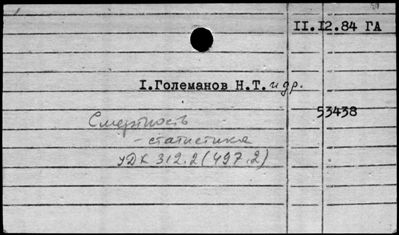 II.12.84 ГА
I.Големанов Н.Т. и др.
53438
Смертность
- статистика
УДК 312.2(497.2)